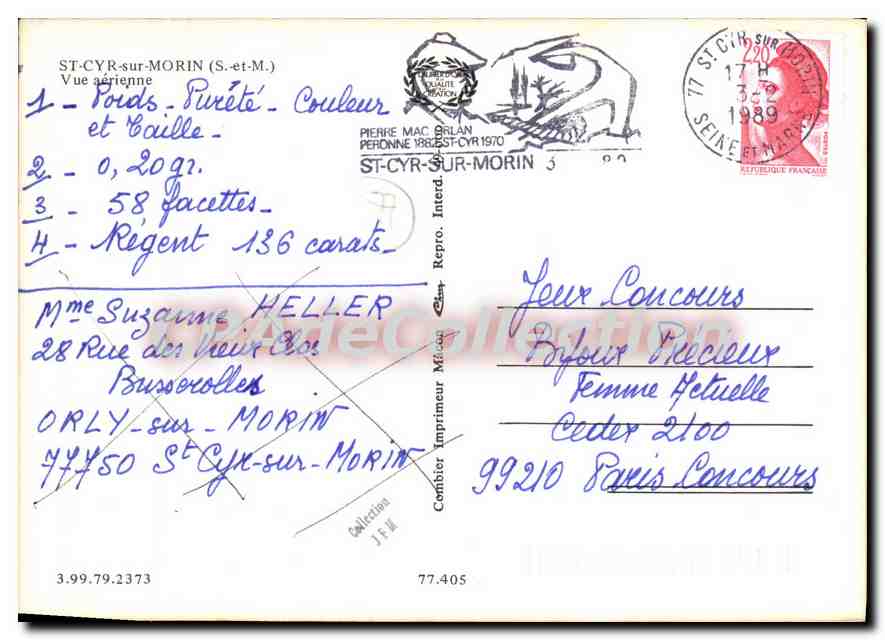 ST-CYR-sur-MORIN (S.-et-M.)
Vue aérienne
1 - Poids - Pureté - Couleur
et Taille -
2 - 0,20 gr.
3 - 58 facettes -
4 - Régent 136 carats -
Mme Suzanne HELLER
28 Rue des Vieux Clos
Busserolles
ORLY-sur-MORIN
77750 St Cyr-sur-MORIN
PIERRE MAC ORLAN
PERONNE 1882 ST-CYR 1970
ST-CYR-SUR-MORIN 3
77 ST CYR SUR MORIN
17 H
3-2
1989
SEINE ET MARNE
2,20
REPUBLIQUE FRANÇAISE
Combier Imprimeur Mâcon Repro. Interd.
Jeux Concours
Bijoux Précieux
Femme Actuelle
Cedex 2100
99210 Paris Concours
CPAdeCollection
Collection
J F M
3.99.79.2373
77.405